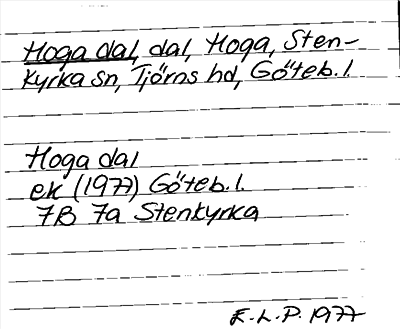 Hoga dal, dal, Hoga, Sten-
kyrka sn, Tjörns hd, Göteb. l.
Hoga dal
ek (1977) Göteb. l.
7B 7a Stenkyrka
E. L. P. 1977